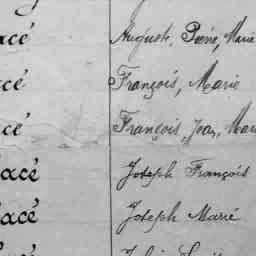 acé Auguste, Pierre, Marie
cé François, Marie
cé François, Jean, Mari
acé Joseph François
acé Joseph Marie